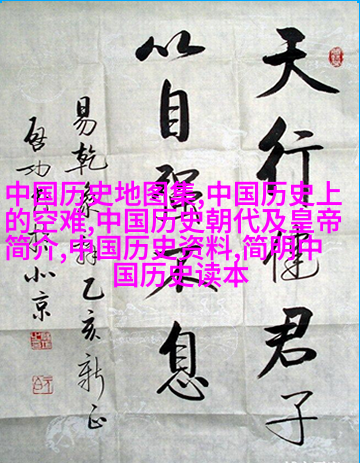 天行健君子
以自彊不息
易乾象辞乙亥新正
启功北京
中国历史地图集,中国历史上
的空难,中国历史朝代及皇帝
简介,中国历史资料,简明中
国历史读本